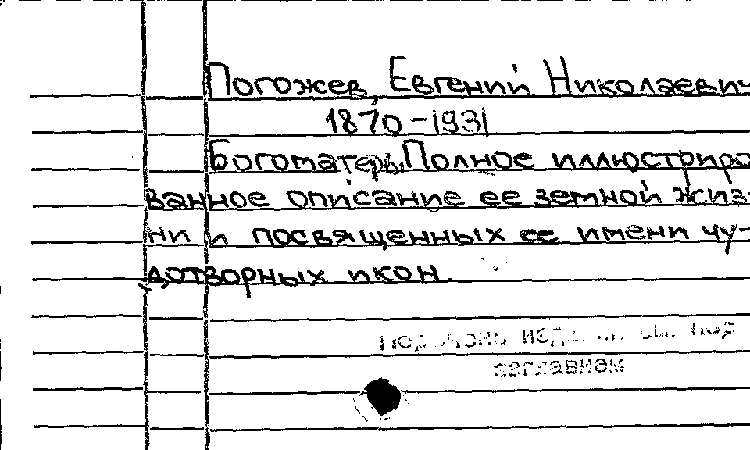 Погожев, Евгений Николаевич
1870-1931
Богоматерь. Полное иллюстриро
ванное описание ее земной жиз-
ни и посвященных ее имени чу-
дотворных икон.
заглавием